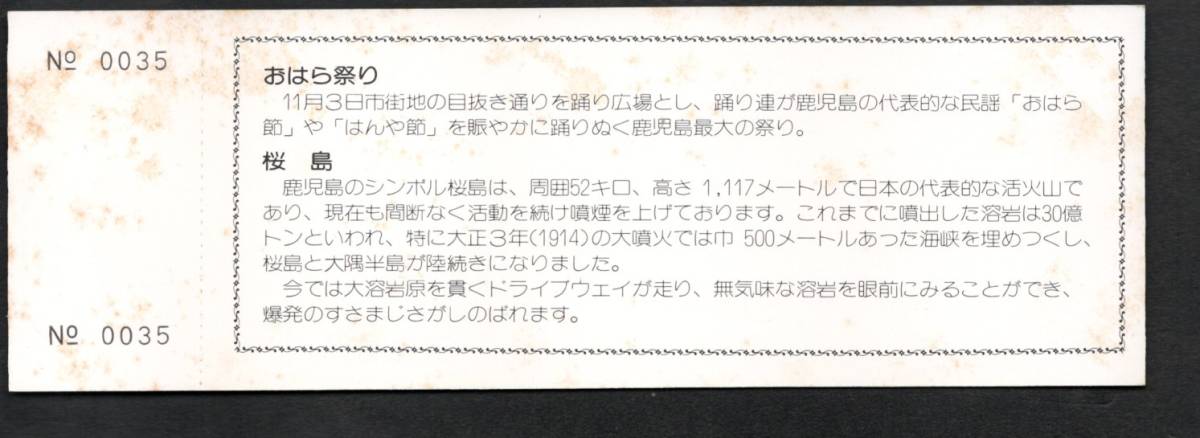 № 0035
おはら祭り
11月3日市街地の目抜き通りを踊り広場とし、踊り連が鹿児島の代表的な民謡「おはら
節」や「はんや節」を賑やかに踊りぬく鹿児島最大の祭り。
桜 島
鹿児島のシンボル桜島は、周囲52キロ、高さ 1,117メートルで日本の代表的な活火山で
あり、現在も間断なく活動を続け噴煙を上げております。これまでに噴出した溶岩は30億
トンといわれ、特に大正3年(1914)の大噴火では巾 500メートルあった海峡を埋めつくし、
桜島と大隅半島が陸続きになりました。
今では大溶岩原を貫くドライブウェイが走り、無気味な溶岩を眼前にみることができ、
爆発のすさまじさがしのばれます。
№ 0035